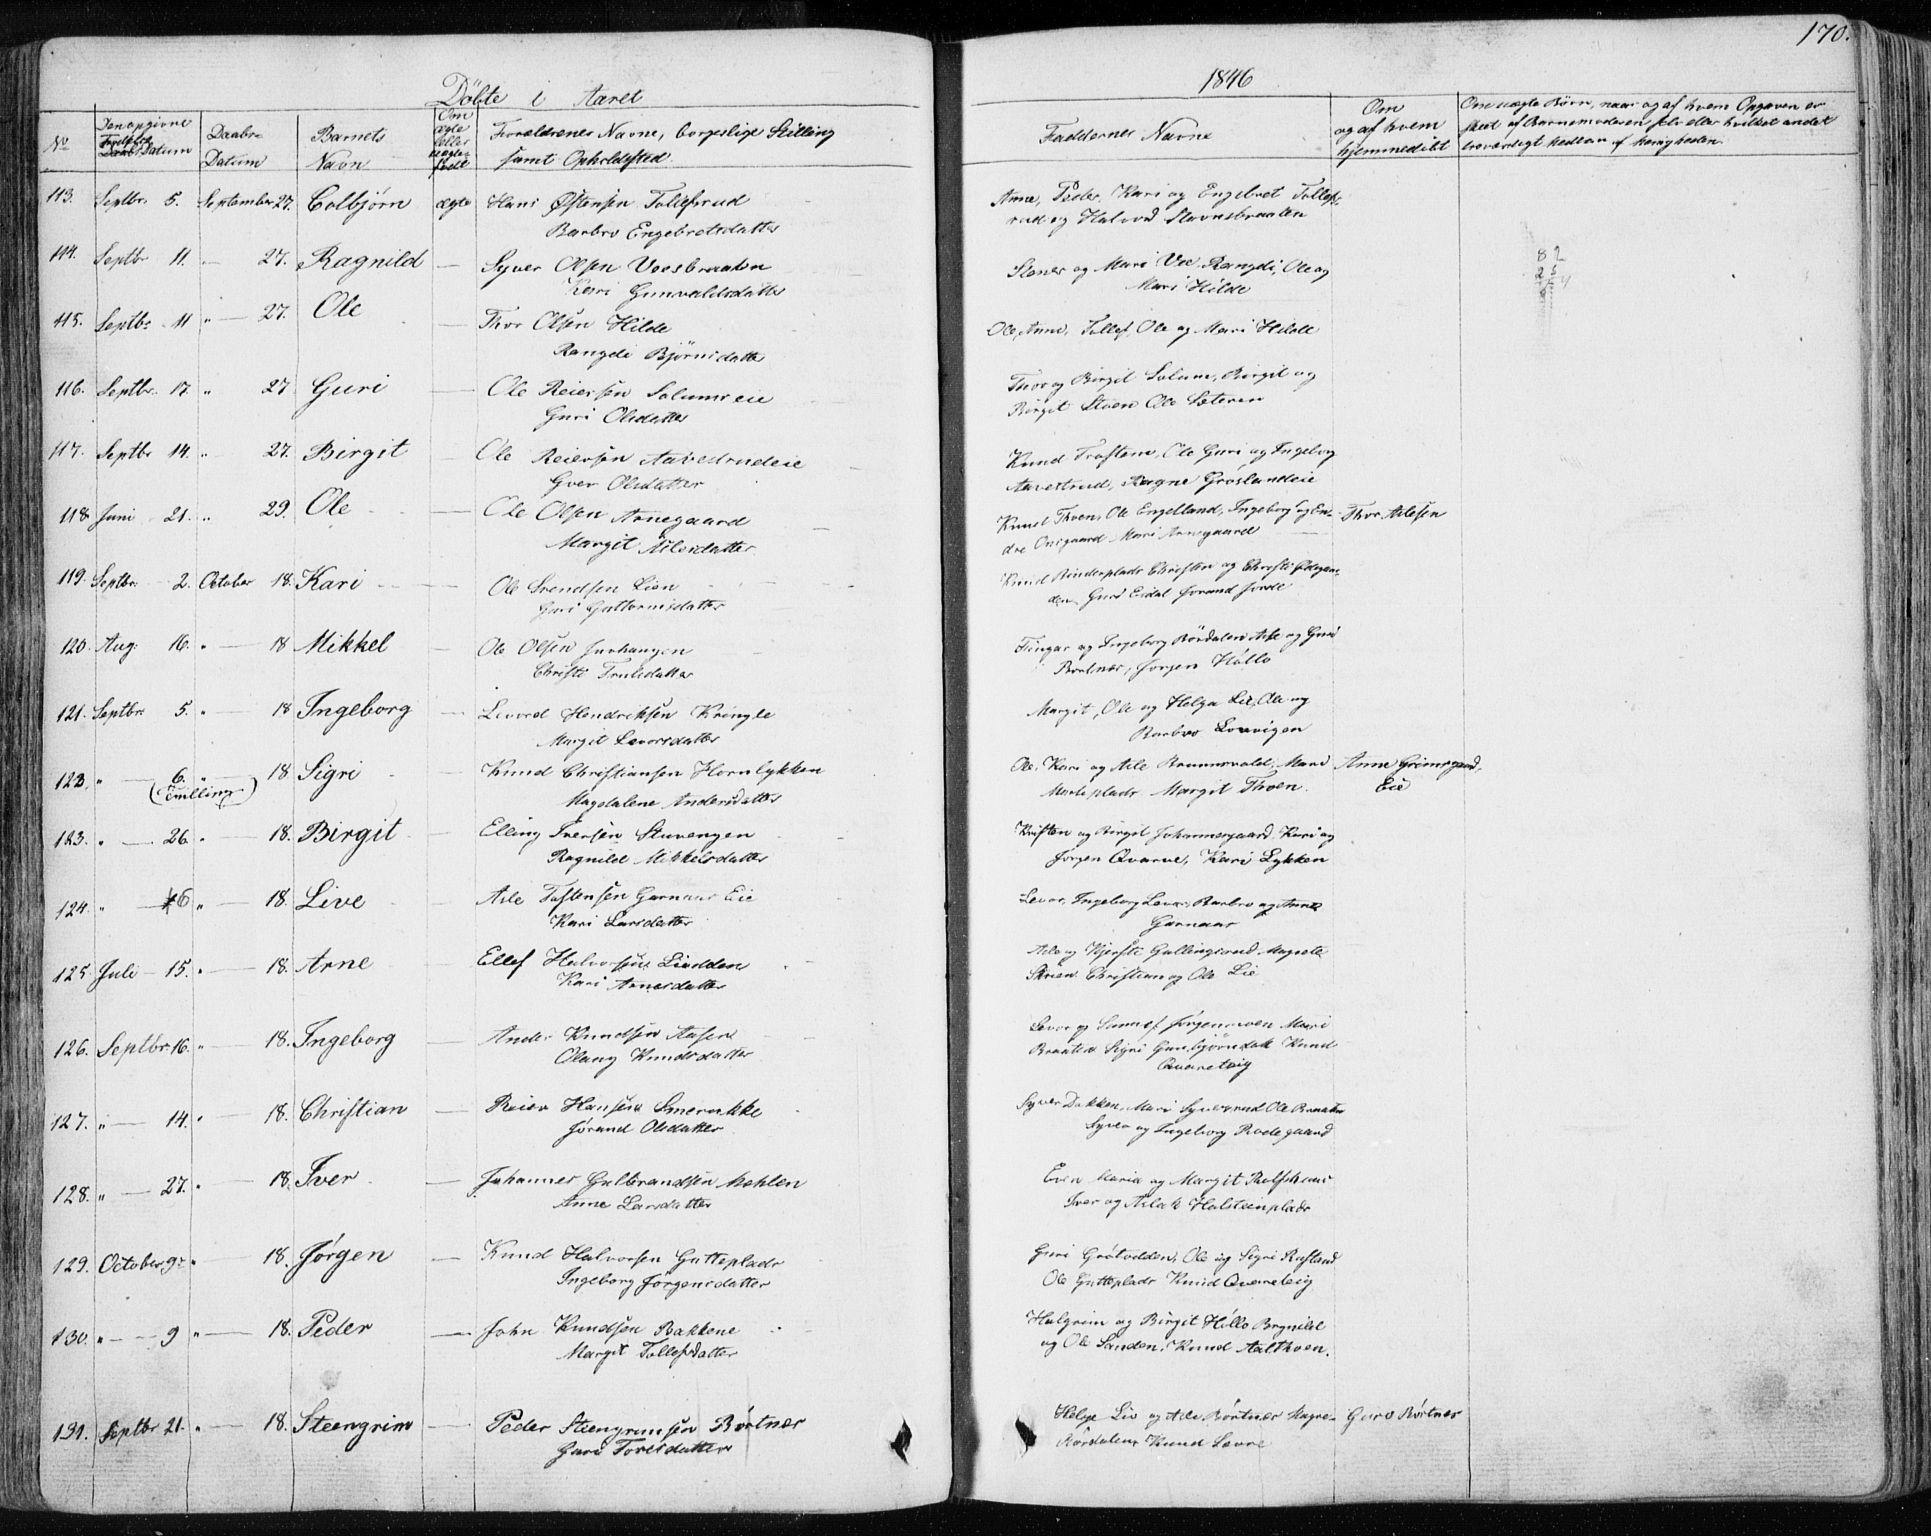 170.
Döbte i Aaret 1846
No
Den opgivne Fødsels Datum
Daabs Datum
Barnets Navn
Om ægte eller uægte født
Forældrenes Navne, borgerlige Stilling samt Opholdsted.
Faddernes Navne
Om og af hvem hjemmedøbt
Om uægte Børn, naar og af hvem Opgaven er skeet af Barnemoderen selv eller hvilket andet troværdigt Medlem af Menigheden.
113. Septbr. 5. September 27. Colbjørn ægte Hans Østensen Tollefsrud
Barbro Engebretsdatter
Anne, Peder, Kari og Engebret Tollefs-
rud og Halvod Stavnsbraaten
114. Septbr 11. — 27. Ragnild — Syver Olsen Voesbraaten
Kari Gunvaldsdatter
Stener og Mari Vee Rangdi, Ole og
Mari Hilde
115. Septbr 11 " — 27. Ole — Thor Olsen Hilde
Rangdi Bjørnsdatter
Ole, Anne, Tollef, Ole og Mari Hilde
116. Septbr. 17. " 27 Guri — Ole Reiersen Solumseie
Guri Olsdatter
Thor og Birgit Solum, Birgit og
Birgit Stoen Ole Sæteren
117. Septbr 14. " 27. Birgit — Ole Reiersen Aavestrudeie
Olsdatter
Knud Trostem, Ole Guri og Ingeborg
Aavestrud, Ragne Grøslandeie
118 Juni 21. " 29. Ole — Ole Olsen Arnegaard
Margit Asledatter
Knud Thoen, Ole Engelland, Ingeborg og En- Thor Aslesen
dre Onsgaard Mari Arnegaard
119. Septbr. 2. October 18. Kari — Ole Svendsen Lien
Guri Guttormsdatter
Knud Rinderplads Christen og Christi
den, Guri Eidal Jørand Jorde
120. Aug: 16. " — 18 Mikkel — Ole Olsen
Christi Trulsdatter
og Ingeborg Rørdalen Asle og Guri
Jørgen Hollo
121. Septbr. 5. " — 18 Ingeborg — Levord Hendriksen Kringle
Margit Levorsdatter
Margit, Ole og Helga Lie, Ole og
Barbro
122. " — 6. " — 18 Sigri — Knud Christiansen Hornlykken
(Tvilling) Magdalene Andersdatter
Ole, Kari og Asle Brunsvold, Mari Anne Grimsgaard,
plads Margit Thoen. Eie
123. " — 26. " — 18. Birgit — Elling Iversen Stavengen
Ragnild Mikkelsdatter
Kristen og Birgit Johannesgaard Kari og
Jørgen Qvarve, Kari Lykken
124. " — 6 " — 18. Live — Asle Tostensen Garnaas Eie
Kari Larsdatter
Levor, Ingeborg Levor, Barbro og Anne
Garnaas
125. Juli — 15. " — 18. Arne — Ellef Halvorsen Lindden
Kari Arnesdatter
Asle og Kjersti Gullingsrud
Christian og Ole Lie
126. Septbr 16. " — 18. Ingeborg — Ander Knudsen Aasen
Olaug Knudsdatter
Levor og Mari
Braaten Sigri Knud
Qvareteig
127. " — 14. " — 18. Christian — Reier Hansen Smerukke
Jørand Olsdatter
Syver Dokken, Mari Syversrud Ole Braaten
Syver og Ingeborg Rodegaard
128. " — 27. " — 18. Iver — Johannes Gulbrandsen Mohlen
Anne Larsdatter
Even Maria og Margit Rolfshuus
Iver og Aslak Halsteinplads
129. October 9 " — 18. Jørgen — Knud Halvorsen Gutteplads
Ingeborg Jørgensdatter
Guri Grøtodden, Ole og Sigri Rustand
Ole Gutteplads Knud Qvareteig
130. " — 9 " — 18. Peder — John Knudsen Bakkene
Margit Tollefsdatter
Halgrim og Birgit Hollo Bragnild
og Ole Sanden. Knud Aalthoen.
131. Septbr 21. " — 18. Steengrim — Peder Steengrimsen Børtnær
Guri Torersdatter
Helge Liv og Asle Børtnær Guro Børtnær
Rørdalen Knud